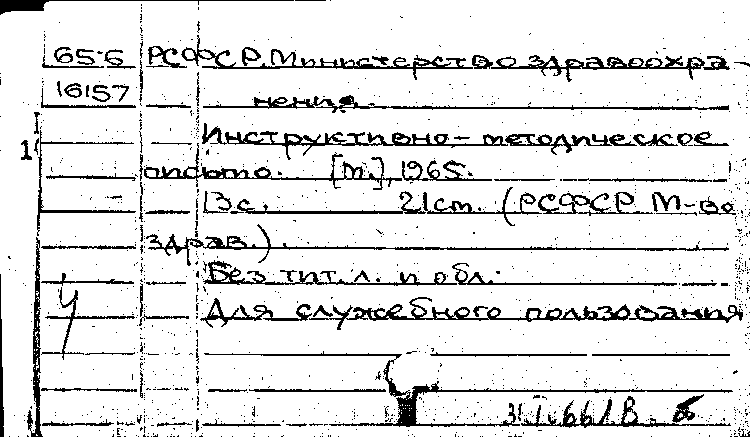 65-6 РСФСР. Министерство здравоохра-
16157 нения.
Инструктивно-методическое
письмо. [М.], 1965.
13с. 21см. (РСФСР. М-во
здрав.).
Без тит. л. и обл.
Для служебного пользования
31.I.66